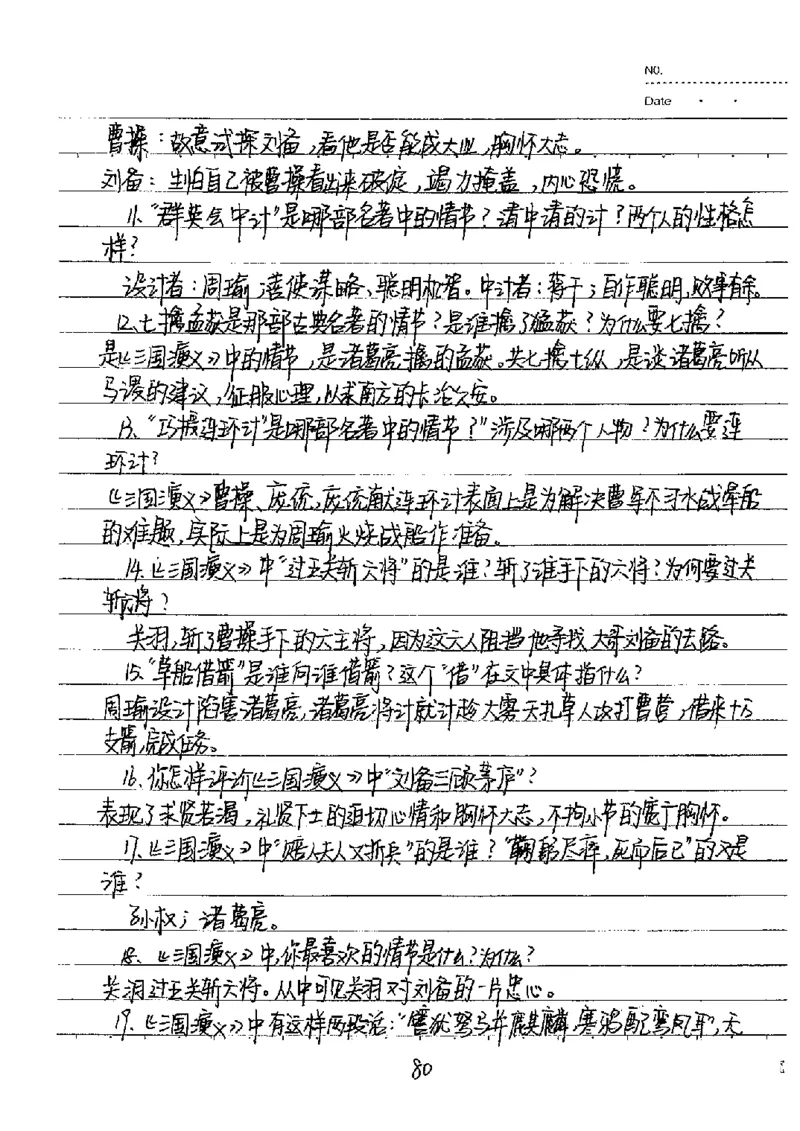 NO.
Date
曹操：故意试探刘备，看他是否能成大业，胸怀大志。
刘备：生怕自己被曹操看出来破绽，竭力掩盖，内心恐慌。
11、“群英会中计”是哪部名著中的情节？请中请的计？两个人的性格怎
样？
设计者：周瑜；善使谋略、聪明机智。中计者：蒋干；自作聪明，败事有余。
12、七擒孟获是那部古典名著的情节？是谁擒了孟获？为什么要七擒？
是《三国演义》中的情节，是诸葛亮擒的孟获。共七擒七纵，是诸葛亮听从
马谡的建议，征服心理，以求南方的长治久安。
13、“巧授连环计”是哪部名著中的情节？”涉及哪两个人物？为什么要连
环计？
《三国演义》曹操、庞统，庞统献连环计表面上是为解决曹军不习水战晕船
的难题，实际上是为周瑜火烧战船作准备。
14、《三国演义》中“过五关斩六将”的是谁？斩了谁手下的六将？为何要过关
斩六将？
关羽，斩了曹操手下的六主将，因为这六人阻挡他寻找大哥刘备的去路。
15、“草船借箭”是谁向谁借箭？这个“借”在文中具体指什么？
周瑜设计陷害诸葛亮，诸葛亮将计就计趁大雾天扎草人攻打曹营，借来十万
支箭，完成任务。
16、你怎样评价《三国演义》中“刘备三顾茅庐”？
表现了求贤若渴，礼贤下士的迫切心情和胸怀大志，不拘小节的宽广胸怀。
17、《三国演义》中“赔了夫人又折兵”的是谁？“鞠躬尽瘁，死而后已”的又是
谁？
孙权；诸葛亮。
18、《三国演义》中，你最喜欢的情节是什么？为什么？
关羽过五关斩六将。从中可见关羽对刘备的一片忠心。
19、《三国演义》中有这样两段话：“譬犹驽马并麒麟，寒鸦配鸾凤耳”，无
80